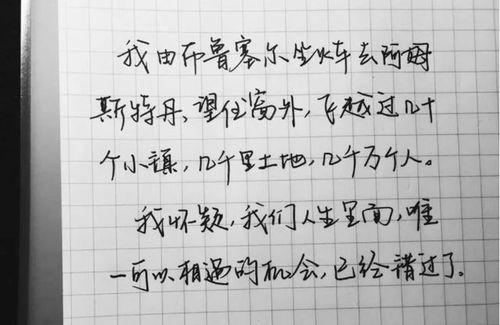 我由布鲁塞尔坐火车去阿姆
斯特丹、望住窗外,飞越过几十
个小镇,几千里土地,几千万个人。
我怀疑,我们人生里面,唯
一可以相遇的机会,已经错过了。